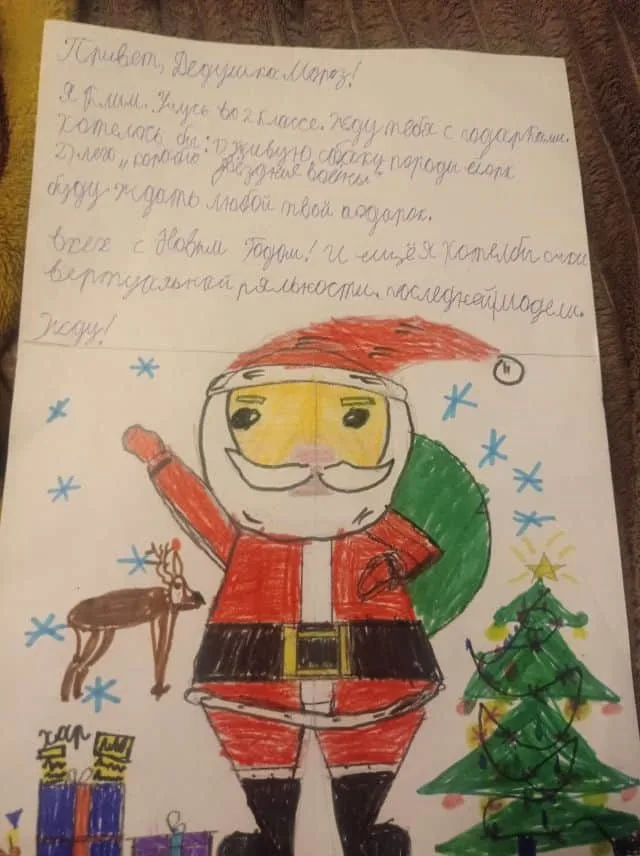 Привет, Дедушка Мороз!
Я Клим. Учусь во 2 классе. Жду тебя с подарками.
Хотелось бы: 1) живую собаку породы йорк
2) лего „ звёздная войны".
буду ждать любой твой подарок.
всех с Новым Годом! И ещё я хотелбы очки
вертуальной ряльности. последней модели.
Жду!
хар